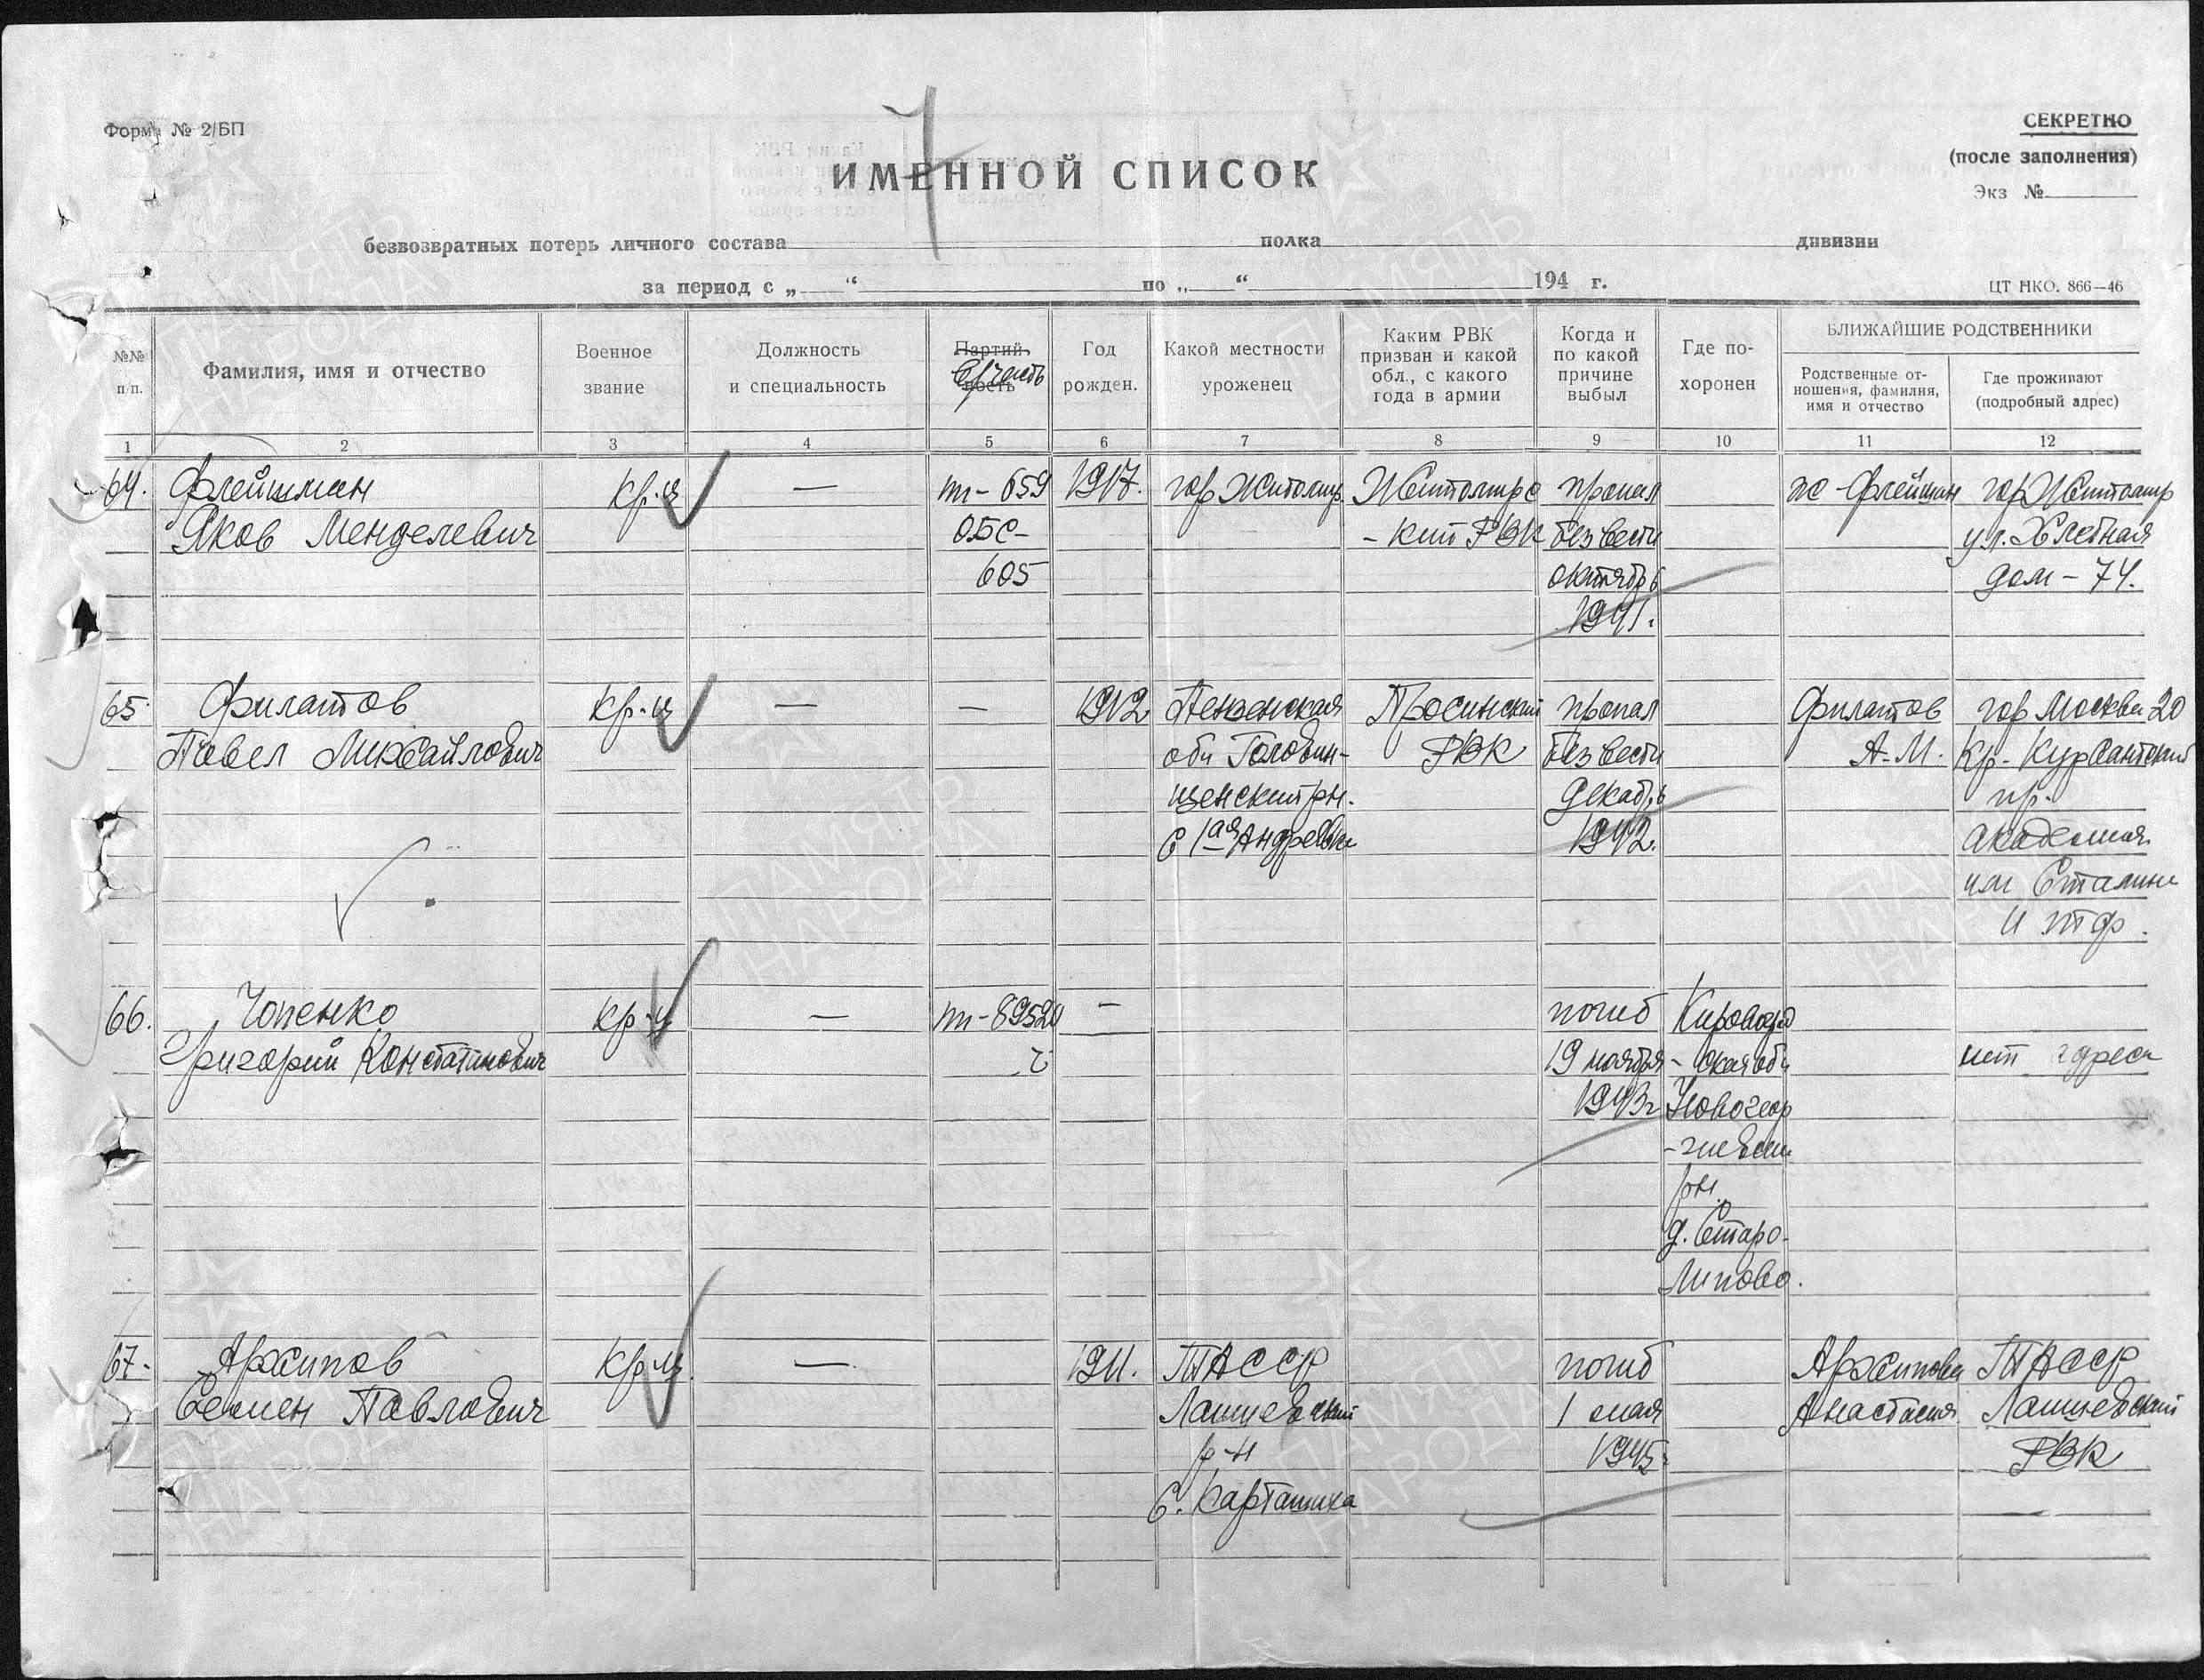 Форма № 2/БП
СЕКРЕТНО
(после заполнения)
Экз №
7
ИМЕННОЙ СПИСОК
безвозвратных потерь личного состава полка дивизии
за период с „ “ по „ “ 194 г.
ЦТ НКО. 866—46
№№ п/п.
Фамилия, имя и отчество
Военное звание
Должность и специальность
Партийность
в/часть
Год рожден.
Какой местности уроженец
Каким РВК призван и какой обл., с какого года в армии
Когда и по какой причине выбыл
Где похоронен
БЛИЖАЙШИЕ РОДСТВЕННИКИ
Родственные отношения, фамилия, имя и отчество
Где проживают (подробный адрес)
1 2 3 4 5 6 7 8 9 10 11 12
64. Флейшман кр-ц — пп-659 1917. гор Житомир Житомирс пропал ж-Флейшман гор Житомир
Яков Менделевич ОБС- -кий РВК без вести ул. Хлебная
605 октябрь дом-74.
1941.
65. Филатов кр-ц — — 1912 Пензенская пропал Филатов гор Москва 20
Павел Михайлович обл Головин- РВК без вести А-М. Кр-Курсантский
щенский рн. декабрь пр.
с 1ая Андреевка 1942. Академия
им Сталина
66. Чопенко кр-ц — пп-89520 — погиб Кировогр
Григорий Константинович 19 ноября -ская обл нет адреса
1943г Новогеор
-гиевски
рн.
д. Старо-
Липово.
67. Архипов кр-ц — 1911. ТАССР погиб Архипова ТАССР
Семен Павлович Лаишевский 1 мая Анастасия Лаишевский
р-н 1945. РВК
с. Карташиха
ПАМЯТЬ
НАРОДА